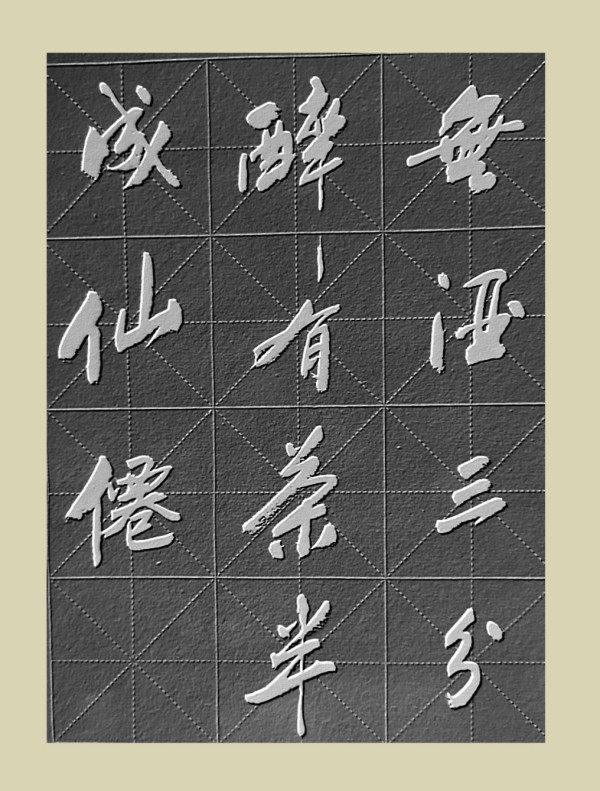 無酒三分
醉有茶半
成仙僊